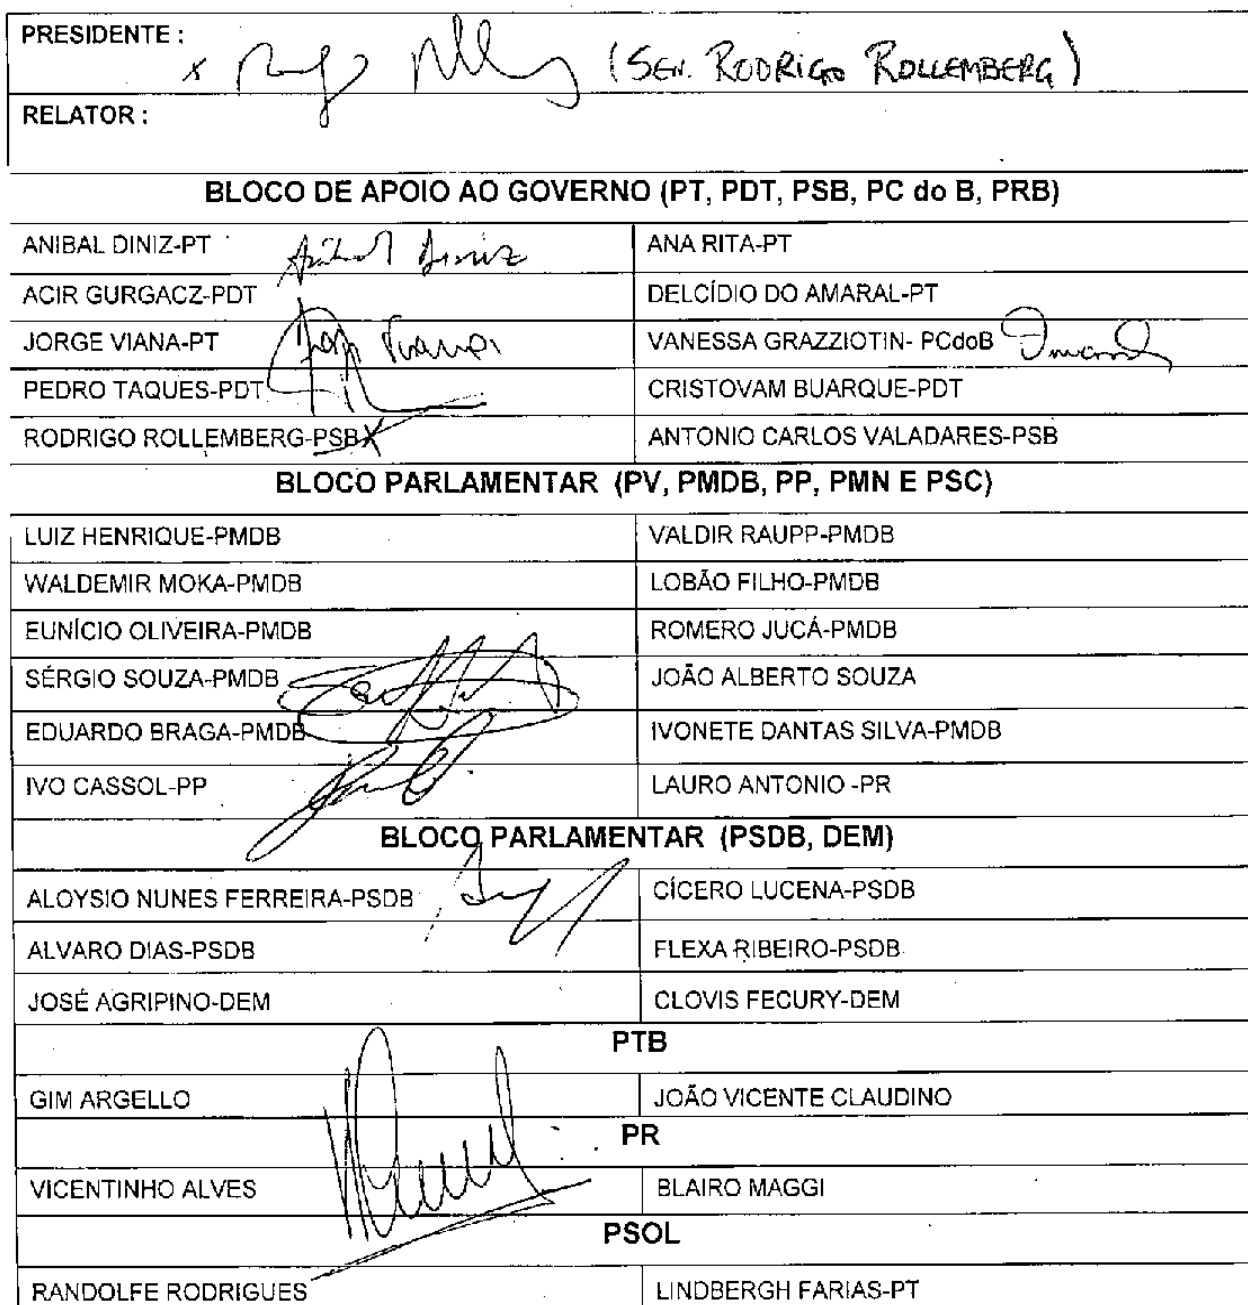 PRESIDENTE :
x (SEN. RODRIGO ROLLEMBERG)
RELATOR :
BLOCO DE APOIO AO GOVERNO (PT, PDT, PSB, PC do B, PRB)
ANIBAL DINIZ-PT Anibal Diniz ANA RITA-PT
ACIR GURGACZ-PDT DELCÍDIO DO AMARAL-PT
JORGE VIANA-PT Viana VANESSA GRAZZIOTIN- PCdoB
PEDRO TAQUES-PDT CRISTOVAM BUARQUE-PDT
RODRIGO ROLLEMBERG-PSB X ANTONIO CARLOS VALADARES-PSB
BLOCO PARLAMENTAR (PV, PMDB, PP, PMN E PSC)
LUIZ HENRIQUE-PMDB VALDIR RAUPP-PMDB
WALDEMIR MOKA-PMDB LOBÃO FILHO-PMDB
EUNÍCIO OLIVEIRA-PMDB ROMERO JUCÁ-PMDB
SÉRGIO SOUZA-PMDB JOÃO ALBERTO SOUZA
EDUARDO BRAGA-PMDB IVONETE DANTAS SILVA-PMDB
IVO CASSOL-PP LAURO ANTONIO -PR
BLOCO PARLAMENTAR (PSDB, DEM)
ALOYSIO NUNES FERREIRA-PSDB CÍCERO LUCENA-PSDB
ALVARO DIAS-PSDB FLEXA RIBEIRO-PSDB
JOSÉ AGRIPINO-DEM CLOVIS FECURY-DEM
PTB
GIM ARGELLO JOÃO VICENTE CLAUDINO
PR
VICENTINHO ALVES BLAIRO MAGGI
PSOL
RANDOLFE RODRIGUES LINDBERGH FARIAS-PT